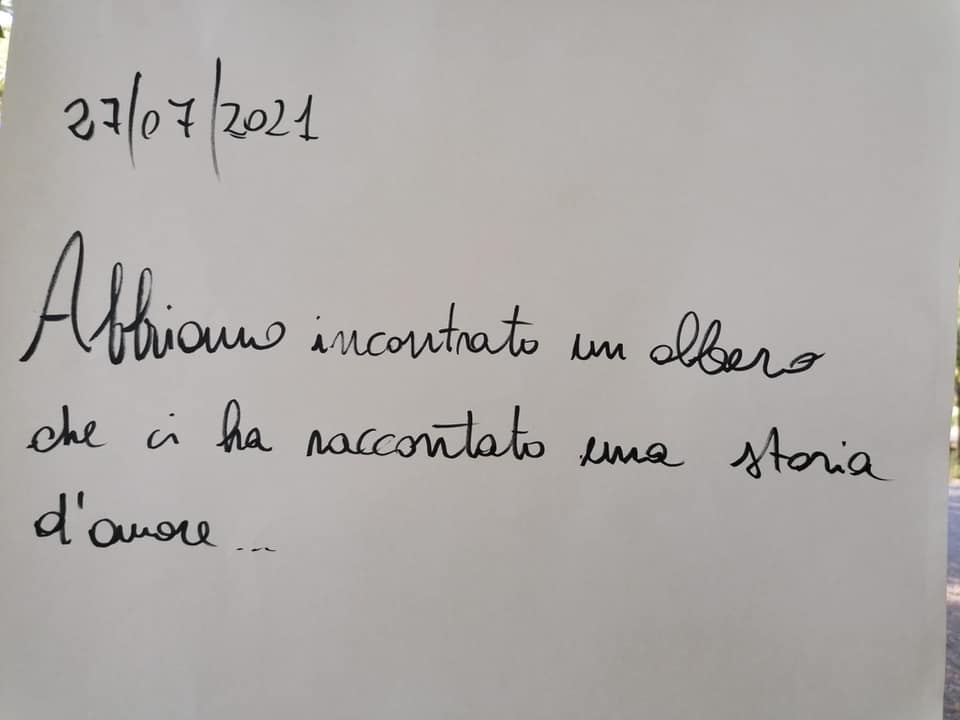 27/07/2021
Abbiamo incontrato un albero
che ci ha raccontato una storia
d'amore...